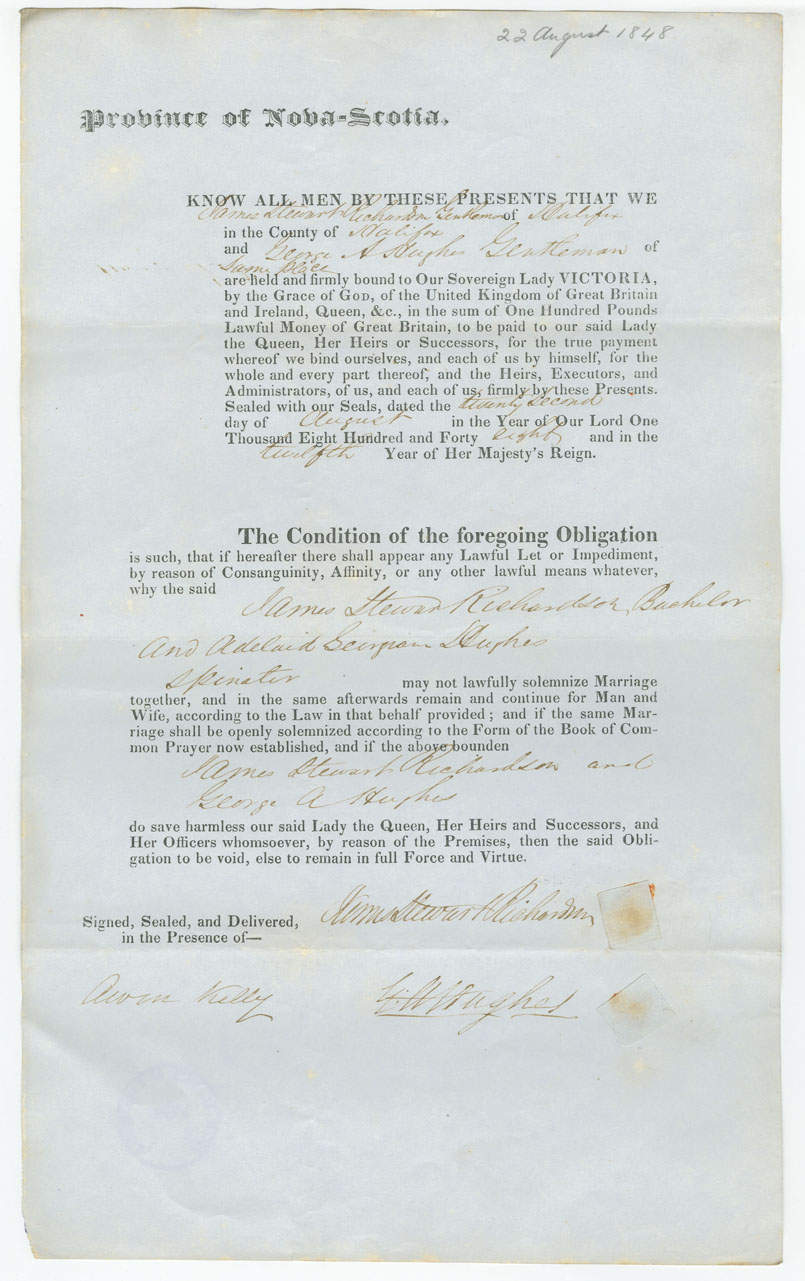 22 August 1848
Province of Nova-Scotia.
KNOW ALL MEN BY THESE PRESENTS, THAT WE
James Stewart Richardson Gentleman of Halifax
in the County of Halifax
and George A Hughes Gentleman of
Same place
are held and firmly bound to Our Sovereign Lady VICTORIA,
by the Grace of GOD, of the United Kingdom of Great Britain
and Ireland, Queen, &c., in the sum of One Hundred Pounds
Lawful Money of Great Britain, to be paid to our said Lady
the Queen, Her Heirs or Successors, for the true payment
whereof we bind ourselves, and each of us by himself, for the
whole and every part thereof, and the Heirs, Executors, and
Administrators, of us, and each of us, firmly by these Presents.
Sealed with our Seals, dated the twenty second
day of August in the Year of Our Lord One
Thousand Eight Hundred and Forty eight and in the
twelfth Year of Her Majesty's Reign.
The Condition of the foregoing Obligation
is such, that if hereafter there shall appear any Lawful Let or Impediment,
by reason of Consanguinity, Affinity, or any other lawful means whatever,
why the said
James Stewar Richardson, Bachelor
and Adelaid Hughes
Spinster may not lawfully solemnize Marriage
together, and in the same afterwards remain and continue for Man and
Wife, according to the Law in that behalf provided; and if the same Mar-
riage shall be openly solemnized according to the Form of the Book of Com-
mon Prayer now established, and if the above bounden
James Stewart Richardson and
George A Hughes
do save harmless our said Lady the Queen, Her Heirs and Successors, and
Her Officers whomsoever, by reason of the Premises, then the said Obli-
gation to be void, else to remain in full Force and Virtue.
James Stewart Richardson
Signed, Sealed, and Delivered,
in the Presence of—
Kelly G. A Hughes